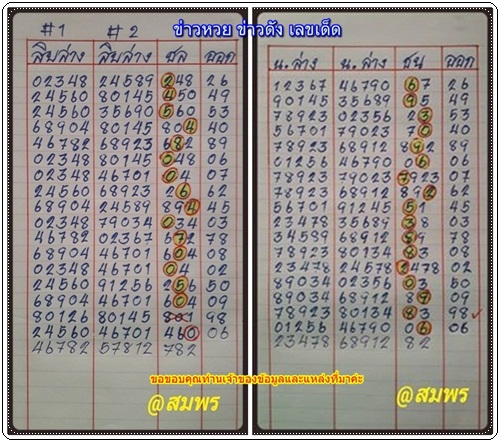 ข่าวหวย ข่าวดัง เลขเด็ด
#1 #2
สิบล่าง สิบล่าง ชล ออก
02348 24589 248 26
24560 80145 450 49
24560 35690 560 53
68904 80145 804 40
46782 68923 682 89
02348 80145 048 06
02348 46701 04 07
24560 68923 6 62
24568 24589 894 45
02348 79034 034 03
46782 02367 672 78
68904 46701 604 08
02348 46701 04 02
24560 91256 256 50
68904 46701 604 09
80126 80145 801 98
24560 46701 460 06
46782 57812 782
น.ล่าง น.ล่าง ชน ออก
12367 46790 67 26
90145 35689 95 49
78923 02356 23 53
56701 79023 70 40
78934 68912 892 89
01256 46790 06 06
78923 79023 7923 07
78923 68912 892 62
56701 91245 51 45
23478 35689 38 03
34589 68912 89 78
78923 80134 83 08
23478 24578 2478 02
89034 02356 03 50
89034 68912 89 09
78923 80134 83 98
01256 46790 06 06
23478 68912 82
ขอขอบคุณท่านเจ้าของข้อมูลและแหล่งที่มาค่ะ
@สมพร
@สมพร